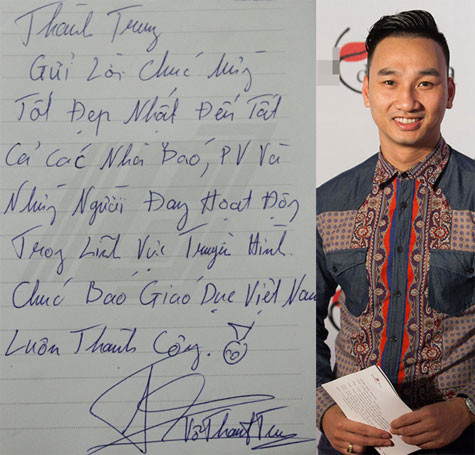 Thành Trung
Gửi Lời Chúc Mừng
Tốt Đẹp Nhất Đến Tất
Cả Các Nhà Báo, PV Và
Những Người Đang Hoạt Động
Trong Lĩnh Vực Truyền Hình.
Chúc Báo Giáo Dục Việt Nam
Luôn Thành Công.
Võ Thành Trung